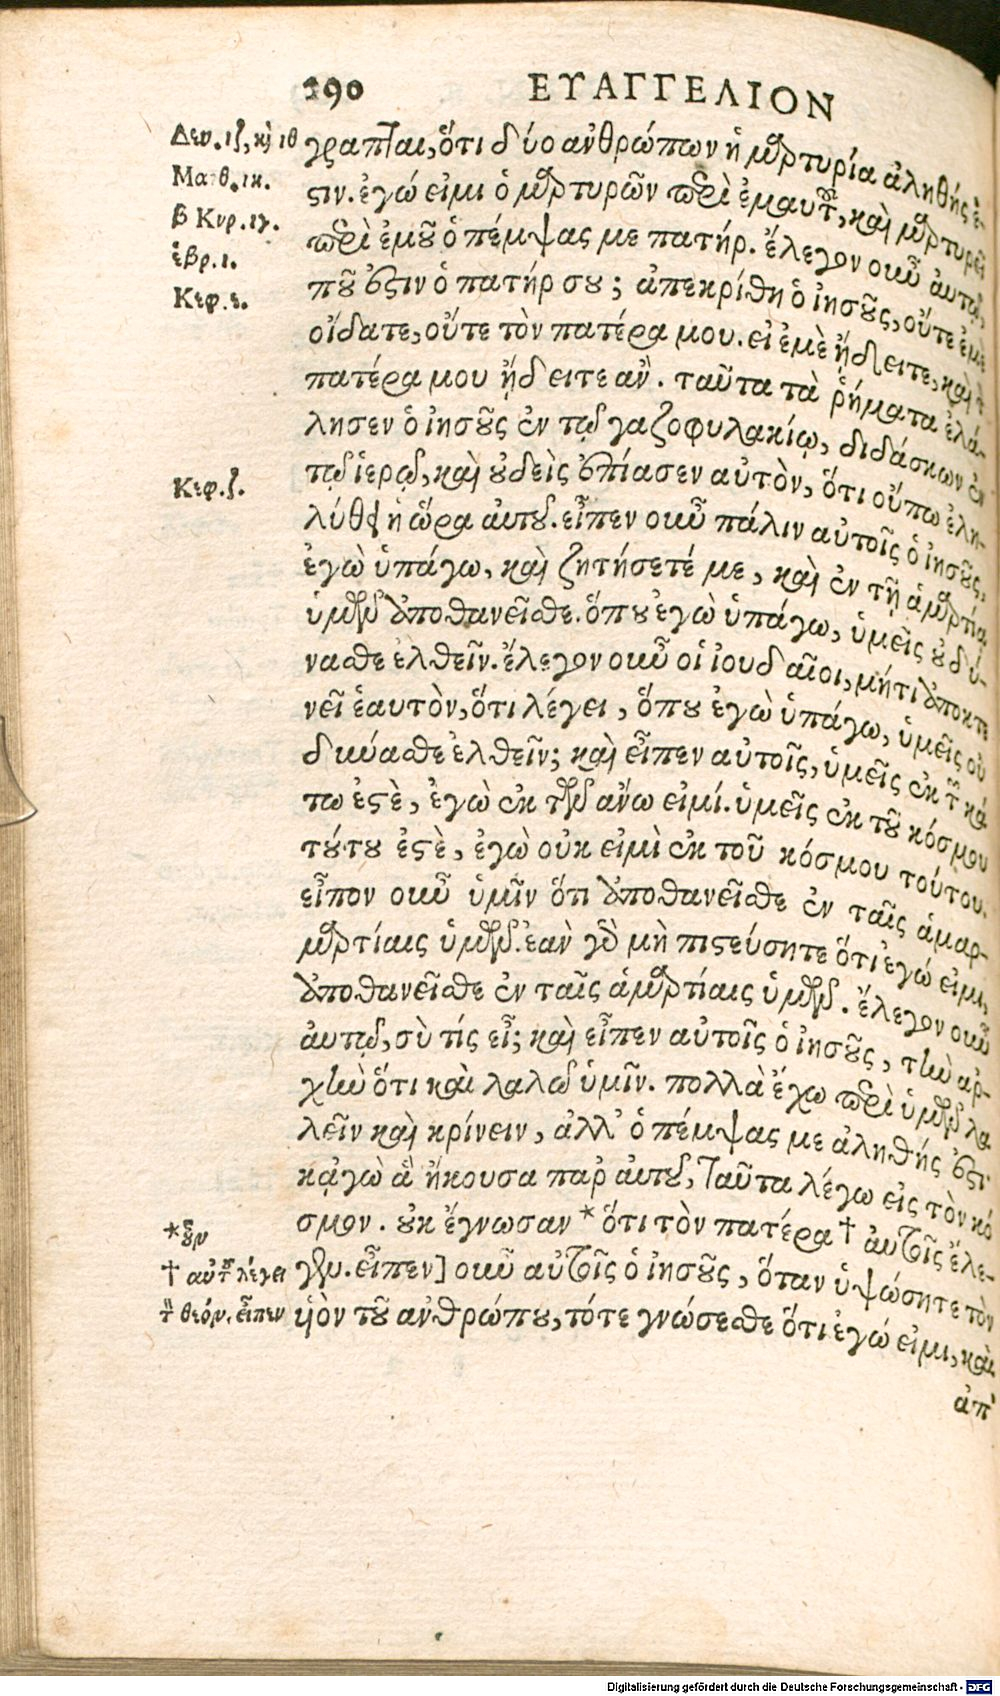 290 ΕΥΑΓΓΕΛΙΟΝ
Δευ. ιζ, κỳ ιθ
Ματθ. ιη.
β Κορ. ιγ.
ἑβρ. ι.
Κεφ. ε.
Κεφ. ζ.
γραπται, ὅτι δύο ἀνθρώπων ἡ μαρτυρία ἀληθής ἐ-
στιν. ἐγώ εἰμι ὁ μαρτυρῶν περὶ ἐμαυτοῦ, καὶ μαρτυρεῖ
περὶ ἐμοῦ ὁ πέμψας με πατήρ. ἔλεγον οὖν ἀυτῷ,
ποῦ ἐστιν ὁ πατήρ σου; ἀπεκρίθη ὁ ἰησοῦς, οὔτε ἐμὲ
οἴδατε, οὔτε τὸν πατέρα μου. εἰ ἐμὲ ᾔδειτε, καὶ τ
πατέρα μου ᾔδειτε ἂν. ταῦτα τὰ ῥήματα ἐλά-
λησεν ὁ ἰησοῦς ἐν τῷ γαζοφυλακίῳ, διδάσκων ἐν
τῷ ἱερῷ, καὶ οὐδεὶς ἐπίασεν αὐτὸν, ὅτι οὔπω ἐλη-
λύθει ἡ ὥρα ἀυτοῦ. εἶπεν οὖν πάλιν αὐτοῖς ὁ ἰησοῦς,
ἐγὼ ὑπάγω, καὶ ζητήσετέ με, καὶ ἐν τῇ ἁμαρτίᾳ
ὑμῶν ἀποθανεῖσθε. ὅπου ἐγὼ ὑπάγω, ὑμεῖς οὐ δύ-
νασθε ἐλθεῖν. ἔλεγον οὖν οἱ ἰουδαῖοι, μήτι ἀποκτε
νεῖ ἑαυτὸν, ὅτι λέγει, ὅπου ἐγὼ ὑπάγω, ὑμεῖς οὐ
δυνασθε ἐλθεῖν; καὶ εἶπεν αὐτοῖς, ὑμεῖς ἐκ τῶν κά
τω ἐστὲ, ἐγὼ ἐκ τῶν ἄνω εἰμί. ὑμεῖς ἐκ τοῦ κόσμου
τούτου ἐστὲ, ἐγὼ οὐκ εἰμὶ ἐκ τοῦ κόσμου τούτου.
εἶπον οὖν ὑμῖν ὅτι ἀποθανεῖσθε ἐν ταῖς ἁμαρ-
μαρτίαις ὑμῶν. ἐὰν γὰρ μὴ πιστεύσητε ὅτι ἐγώ εἰμι,
ἀποθανεῖσθε ἐν ταῖς ἁμαρτίαις ὑμῶν. ἔλεγον οὖν
ἀυτῷ, σὺ τίς εἶ; καὶ εἶπεν αὐτοῖς ὁ ἰησοῦς, τὴν ἀρ-
χὴν ὅτι καὶ λαλῶ ὑμῖν. πολλὰ ἔχω περὶ ὑμῶν λα
λεῖν καὶ κρίνειν, ἀλλ' ὁ πέμψας με ἀληθής ἐστι
κᾀγὼ ἃ ἤκουσα παρ ἀυτοῦ, ταῦτα λέγω εἰς τὸν κό
σμον. οὐκ ἔγνωσαν * ὅτι τὸν πατέρα † ἀυτοῖς ἔλε-
γεν. εἶπεν] οὖν αὐτοῖς ὁ ἰησοῦς, ὅταν ὑψώσητε τὸν
ὑὸν τοῦ ἀνθρώπου, τότε γνώσεσθε ὅτι ἐγώ εἰμι, καὶ
ἀπ'
* οὖν
† αὐτῶν λέγει
‡ θεόν. εἶπεν
Digitalisierung gefördert durch die Deutsche Forschungsgemeinschaft - DFG